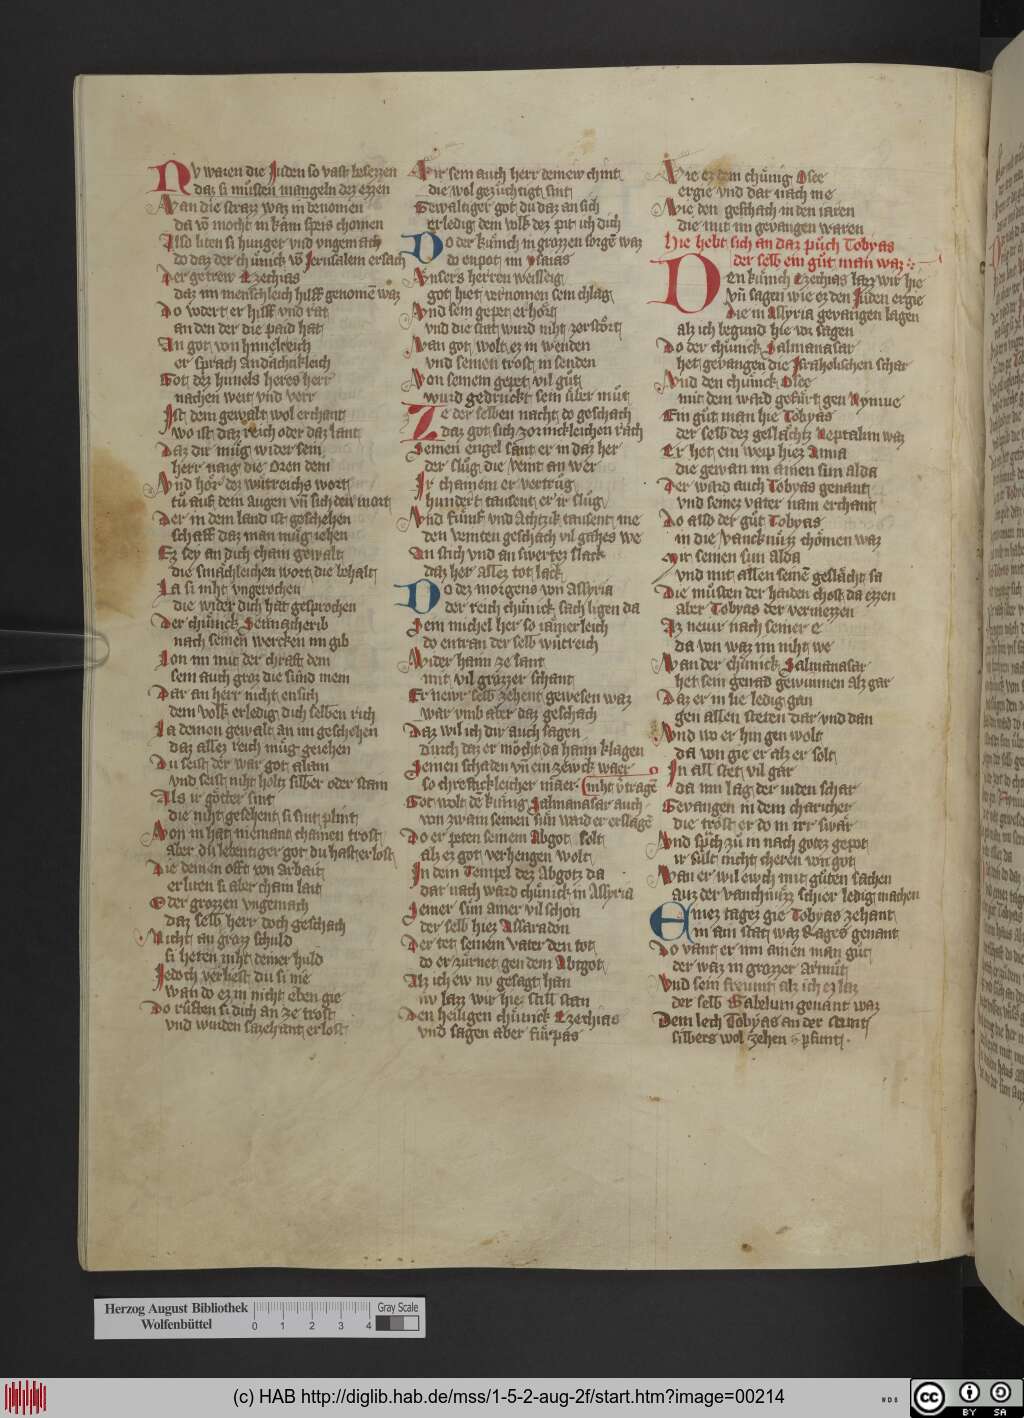 Nv waren die Juden so vast besezzen
daz si můsten mangeln dez ezzen
Wan die strazz waz in benomen
da vō mocht in kain speis chomen
Also liten si hunger vnd vngemach
do daz der chůnick vō Jerusalem ersach
Der getrew Ezechias
daz im menschleich hilff genomē waz
Do vodert er hilff vnd rat
an den der die paid hat
An got von himelreich
er sprach Andachtikleich
Got dez himels heres herr
nachen weit vnd verr
Ist dein gewalt wol erchant
wo ist daz reich oder daz lant
Daz dir můg wider sein
herr naig die Oren dein
Vnd hör dez wůtreichs wort
tů auf dein augen vn̄ sich den mort
Der in dem land ist geschehen
schaff daz man můg iehen
Ez sey an dich cham gewalt
die smächleichen wort die behalt
La si niht vngerochen
die wider dich hat gesprochen
Der chůnick Sennacherib
nach seinen wercken im gib
Lon im mit der chraft dein
sein auch groz die sůnd mein
Dar an herr nicht ensich
dein volk erledig durch selben dich
La deinen gewalt an im geschehen
daz allez reich můg geiehen
Du seist der war got alain
vnd seist niht holtz silber oder stain
Als ir götter sint
die niht gesehent si sint plint
Von in hat niemant chainen trost
aber du lebentiger got du hast erlost
Die deinen offt von arbait
er liten si aber chain lait
Oder grozzen vngemach
daz selb herr doch geschach
Nicht an grozz schuld
si heten niht deiner huld
Jedoch verliest du si nie
wan do ez in nicht eben gie
Do růften si dich an ze trost
vnd wurden sazehant erlost
Wir sein auch herr deinew chint
die wol gezůchtigt sint
Gewaltiger got du daz an sich
erledig dein volk dez pit ich dich
Do der kůnich in grozzen sorgē waz
do enpot im ysaias
Vnsers herren weissag
got hiet vernomen sein chlag
Vnd sein gepet erhört
vnd die stat wurd niht zerstört
Wan got wolt ez in wenden
vnd seinen trost in senden
Von seinem gepet vil gůt
wurd gedruckt sein über můt
Ze der selben nacht do geschach
daz got sich zornickleichen rach
Seinen engel sant er in daz her
der slůg die veint an wer
Ir chainem er vertrůg
hundert tausent er ir slůg
Vnd fůnf vnd Achtzik tausent me
den veinten geschach vil gahes we
An stich vnd an swertez slack
daz her allez tot lack
Do dez morgens von Assyria
der reich chůnick sach ligen da
Sein michel her so iämerleich
do entran der selb wůtreich
Wider haim ze lant
mit vil grozzer schant
Er newr selb zehent gewesen waz
war vmb aber daz geschach
Daz wil ich dir auch sagen
durch daz er möcht da haim klagen
Seinen schaden vn̄ ein zewck waer
so chrefftickleicher maer
niht v̄trage
Got wolt dē kůnig Salmanasar auch
von zwain seinen sůn werd er erslagē
Do er peten seinem Abgot solt
alz ez got verhengen wolt
In dem Tempel dez Abgotz da
dar nach ward chůnick in Assyria
Seiner sůn ainer vil schon
der selb hiez Assaradon
Der tet seinem vater den tot
do er zůrnet gen dem Abtgot
Alz ich ew nv gesagt han
nv lazz wir hie still stan
Den heiligen chůnick Ezechias
vnd sagen aber fůrpas
Wie ez dem chůnig Osee
ergie vnd dar nach me
Wie den geschach in den iaren
die mit im gevangen waren
Hie hebt sich an daz půch Tobyas
der selb ein gůt man waz
Den kůnich Ezechias lazz wir hie
vn̄ sagen wie ez den Juden ergie
Die in Assyria gevangen lagen
alz ich begund hie vor sagen
Do der chůnick Salmanasar
het gevangen die Israhelischen schar
Vnd den chůnick Osee
mit dem ward gefůrt gen Nyniue
Ein gůt man hie Tobyas
der selb dez geslächtz Neptalim waz
Er het ein weip hiez Anna
die gewan im ainen sun alda
Der ward auch Tobyas genant
vnd seinez vater nam erchant
Do also der gůt Tobyas
in die vancknůzz chomen waz
Mit seinem sun alda
vnd mit allen seinē geslächt sa
Die můsten der haiden chost da ezzen
aber Tobyas der vermezzen
Az newr nach seiner e
da von waz im niht we
Wan der chůnick Salmanasar
het sein genad gewunnen alz gar
Daz er in lie ledig gan
gen allen steten dar vnd dan
Vnd wo er hin gen wolt
da von gie er alz er solt
In all stet vil gar
da inn lag der iuden schar
Gevangen in dem charicher
die trost er do in irr swär
Vnd sp̄ch zů in nach gotez gepot
ir sůlt nicht cheren von got
Wan er wil ewch mit gůten sachen
auz der vanchnůzz schier ledig machen
Einez tagez gie Tobyas zehant
in ain stat waz Rages genant
Do vant er inn ainen man gůt
der waz in grozzer armůt
Vnd sein freunt alz ich ez laz
der selb Gabelum genant waz
Dem lech Tobyas an der stunt
silbers wol zehen pfunt
Herzog August Bibliothek
Wolfenbüttel
0 1 2 3 4
Gray Scale
(c) HAB http://diglib.hab.de/mss/1-5-2-aug-2f/start.htm?image=00214
WDB
cc BY SA